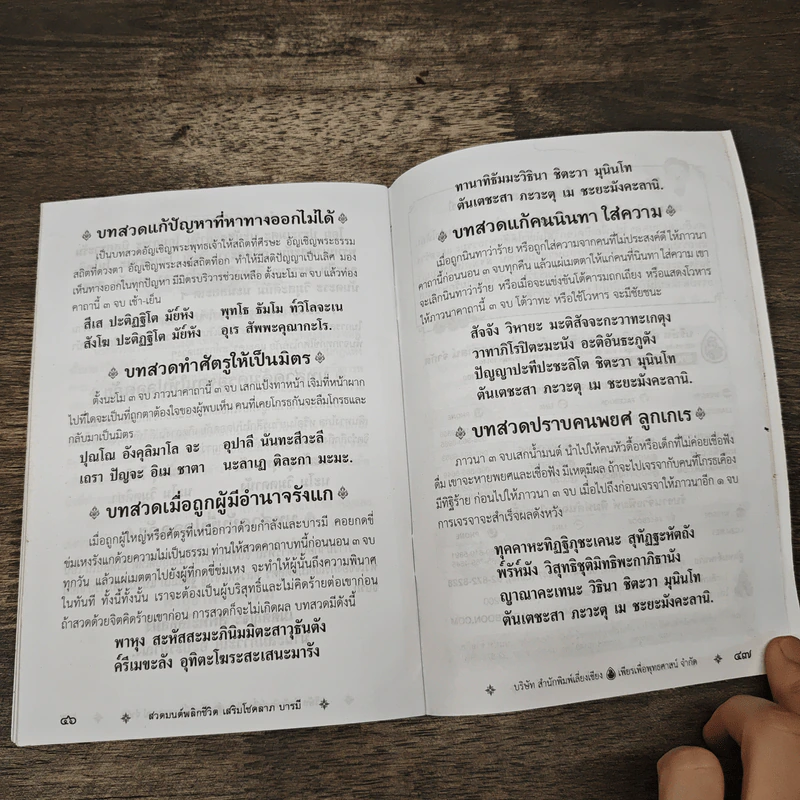 บทสวดแก้ปัญหาที่หาทางออกไม่ได้
เป็นบทสวดอัญเชิญพระพุทธเจ้าให้สถิตที่ศีรษะ อัญเชิญพระธรรม
สถิตที่ดวงตา อัญเชิญพระสงฆ์สถิตที่อก ทำให้มีสติปัญญาเป็นเลิศ มอง
เห็นทางออกในทุกปัญหา มีมิตรบริวารช่วยเหลือ ตั้งนะโม ๓ จบ แล้วท่อง
คาถานี้ ๓ จบ เช้า-เย็น
สีเส ปะติฏฐิโต มัยหัง พุทโธ ธัมโม ท์วิโลจะเน
สังโฆ ปะติฏฐิโต มัยหัง อุเร สัพพะคุณากะโร.
บทสวดทำศัตรูให้เป็นมิตร
ตั้งนะโม ๓ จบ ภาวนาคาถานี้ ๓ จบ เสกแป้งทาหน้า เจิมที่หน้าผาก
ไปที่ใดจะเป็นที่ถูกตาต้องใจของผู้พบเห็น คนที่เคยโกรธกันจะลืมโกรธและ
กลับมาเป็นมิตร
ปุณโณ อังคุลิมาโล จะ อุปาลี นันทะสีวะลี
เถรา ปัญจะ อิเม ชาตา นะลาเฏ ติละกา มะมะ.
บทสวดเมื่อถูกผู้มีอำนาจรังแก
เมื่อถูกผู้ใหญ่หรือศัตรูที่เหนือกว่าด้วยกำลังและบารมี คอยกดขี่
ข่มเหงรังแกด้วยความไม่เป็นธรรม ท่านให้สวดคาถาบทนี้ก่อนนอน ๓ จบ
ทุกวัน แล้วแผ่เมตตาไปยังผู้ที่กดขี่ข่มเหง จะทำให้ผู้นั้นถึงความพินาศ
ในทันที ทั้งนี้ทั้งนั้น เราจะต้องเป็นผู้บริสุทธิ์และไม่คิดร้ายต่อเขาก่อน
ถ้าสวดด้วยจิตคิดร้ายเขาก่อน การสวดก็จะไม่เกิดผล บทสวดมีดังนี้
พาหุง สะหัสสะมะภินิมมิตะสาวุธันตัง
ค์รีเมขะลัง อุทิตะโฆระสะเสนะมารัง
๔๖ สวดมนต์พลิกชีวิต เสริมโชคลาภ บารมี
ทานาทิธัมมะวิธินา ชิตะวา มุนินโท
ตันเตชะสา ภะวะตุ เม ชะยะมังคะลานิ.
บทสวดแก้คนนินทา ใส่ความ
เมื่อถูกนินทาว่าร้าย หรือถูกใส่ความจากคนที่ไม่ประสงค์ดี ให้ภาวนา
คาถานี้ก่อนนอน ๓ จบทุกคืน แล้วแผ่เมตตาให้แก่คนที่นินทา ใส่ความ เขา
จะเลิกนินทาว่าร้าย หรือเมื่อจะแข่งขันโต้คารมถกเถียง หรือแสดงไวหาร
ให้ภาวนาคาถานี้ ๓ จบ โต้วาทะ หรือใช้ไวหาร จะมีชัยชนะ
สัจจัง วิหายะ มะติสัจจะกะวาทะเกตุง
วาทาภิโรปิตะมะนัง อะติอันธะภูตัง
ปัญญาปะทีปะชะลิโต ชิตะวา มุนินโท
ตันเตชะสา ภะวะตุ เม ชะยะมังคะลานิ.
บทสวดปราบคนพยศ ลูกเกเร
ภาวนา ๓ จบเสกน้ำมนต์ นำไปให้คนหัวดื้อหรือเด็กที่ไม่ค่อยเชื่อฟัง
ดื่ม เขาจะหายพยศและเชื่อฟัง มีเหตุมีผล ถ้าจะไปเจรจากับคนที่โกรธเคือง
มีทิฐิร้าย ก่อนไปให้ภาวนา ๓ จบ เมื่อไปถึงก่อนเจรจาให้ภาวนาอีก ๑ จบ
การเจรจาจะสำเร็จผลดังหวัง
ทุคคาหะทิฏฐิภุชะเคนะ สุทัฏฐะหัตถัง
พ์รัห์มัง วิสุทธิชุติมิทธิพะกาภิธานัง
ญาณาคะเทนะ วิธินา ชิตะวา มุนินโท
ตันเตชะสา ภะวะตุ เม ชะยะมังคะลานิ.
บริษัท สำนักพิมพ์เลี่ยงเชียง เพียรเพื่อพุทธศาสน์ จำกัด ๔๗